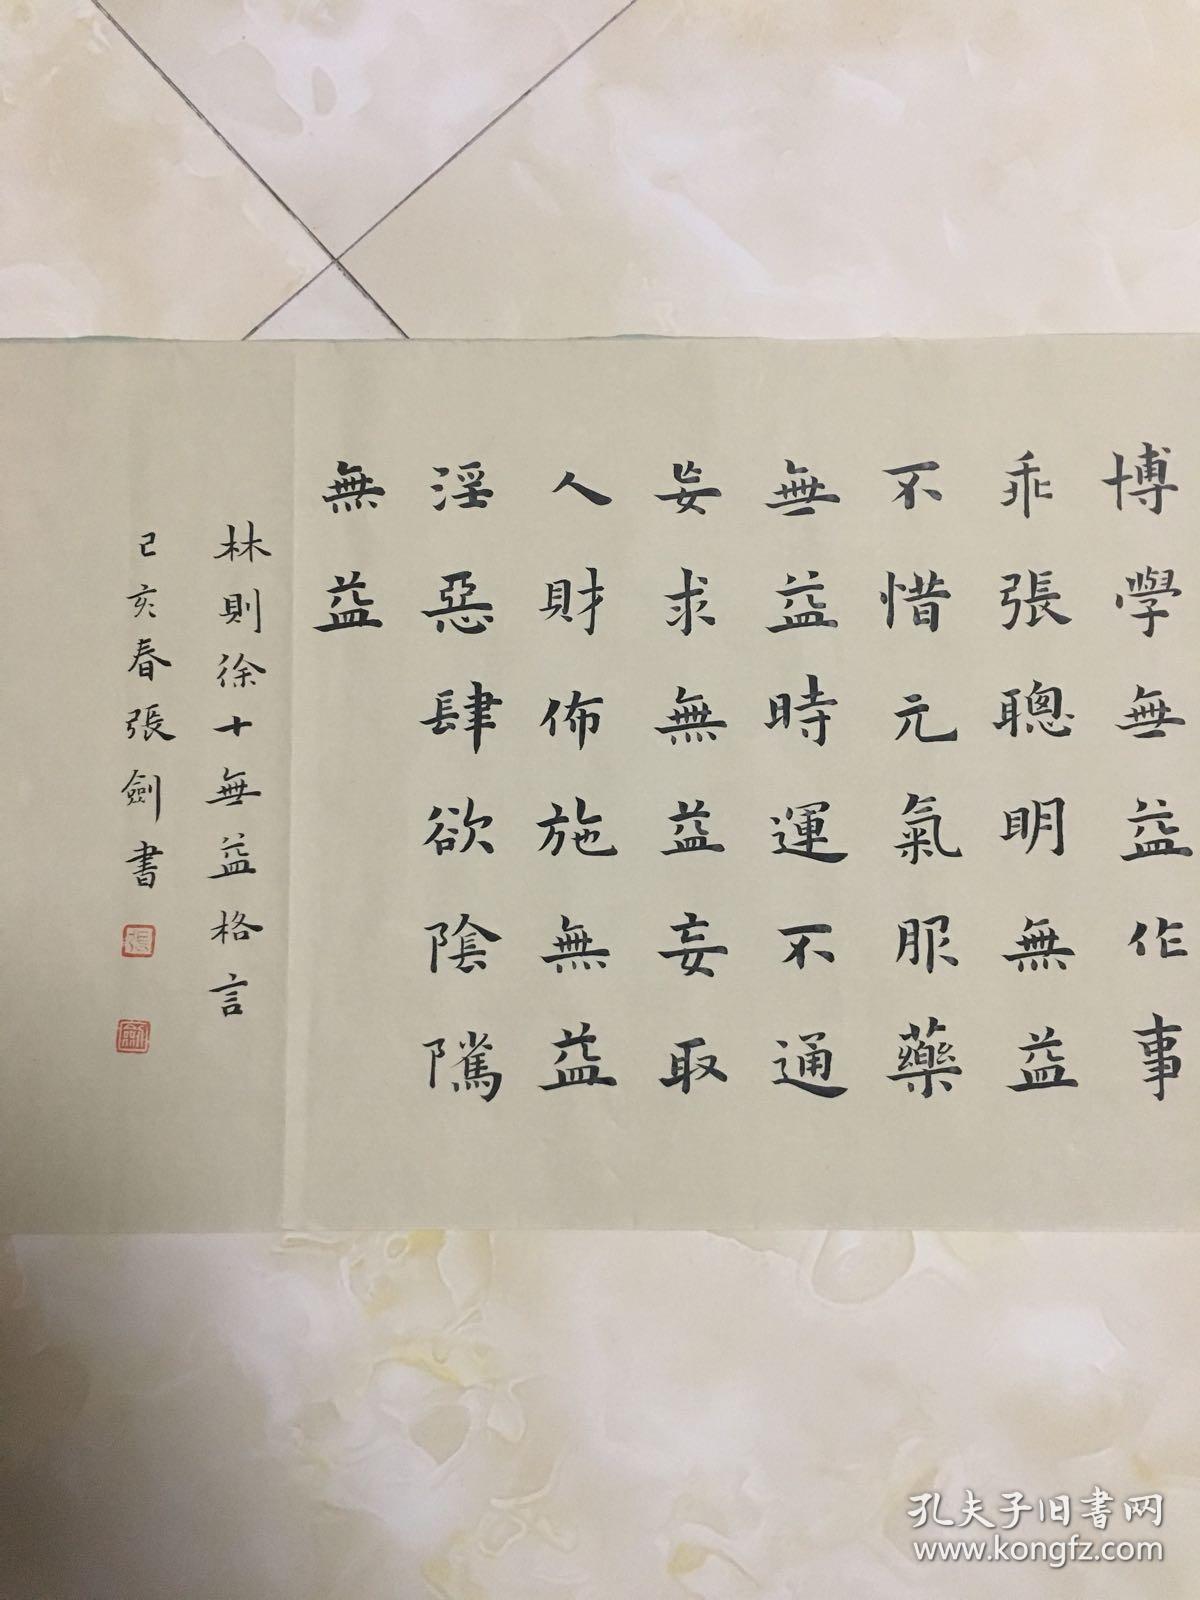 博學無益作事
乖張聰明無益
不惜元氣服藥
無益時運不通
妄求無益妄取
人財佈施無益
淫惡肆欲陰隲
無益
林則徐十無益格言
己亥春張劍書
張
劍
孔夫子旧书网
www.kongfz.com